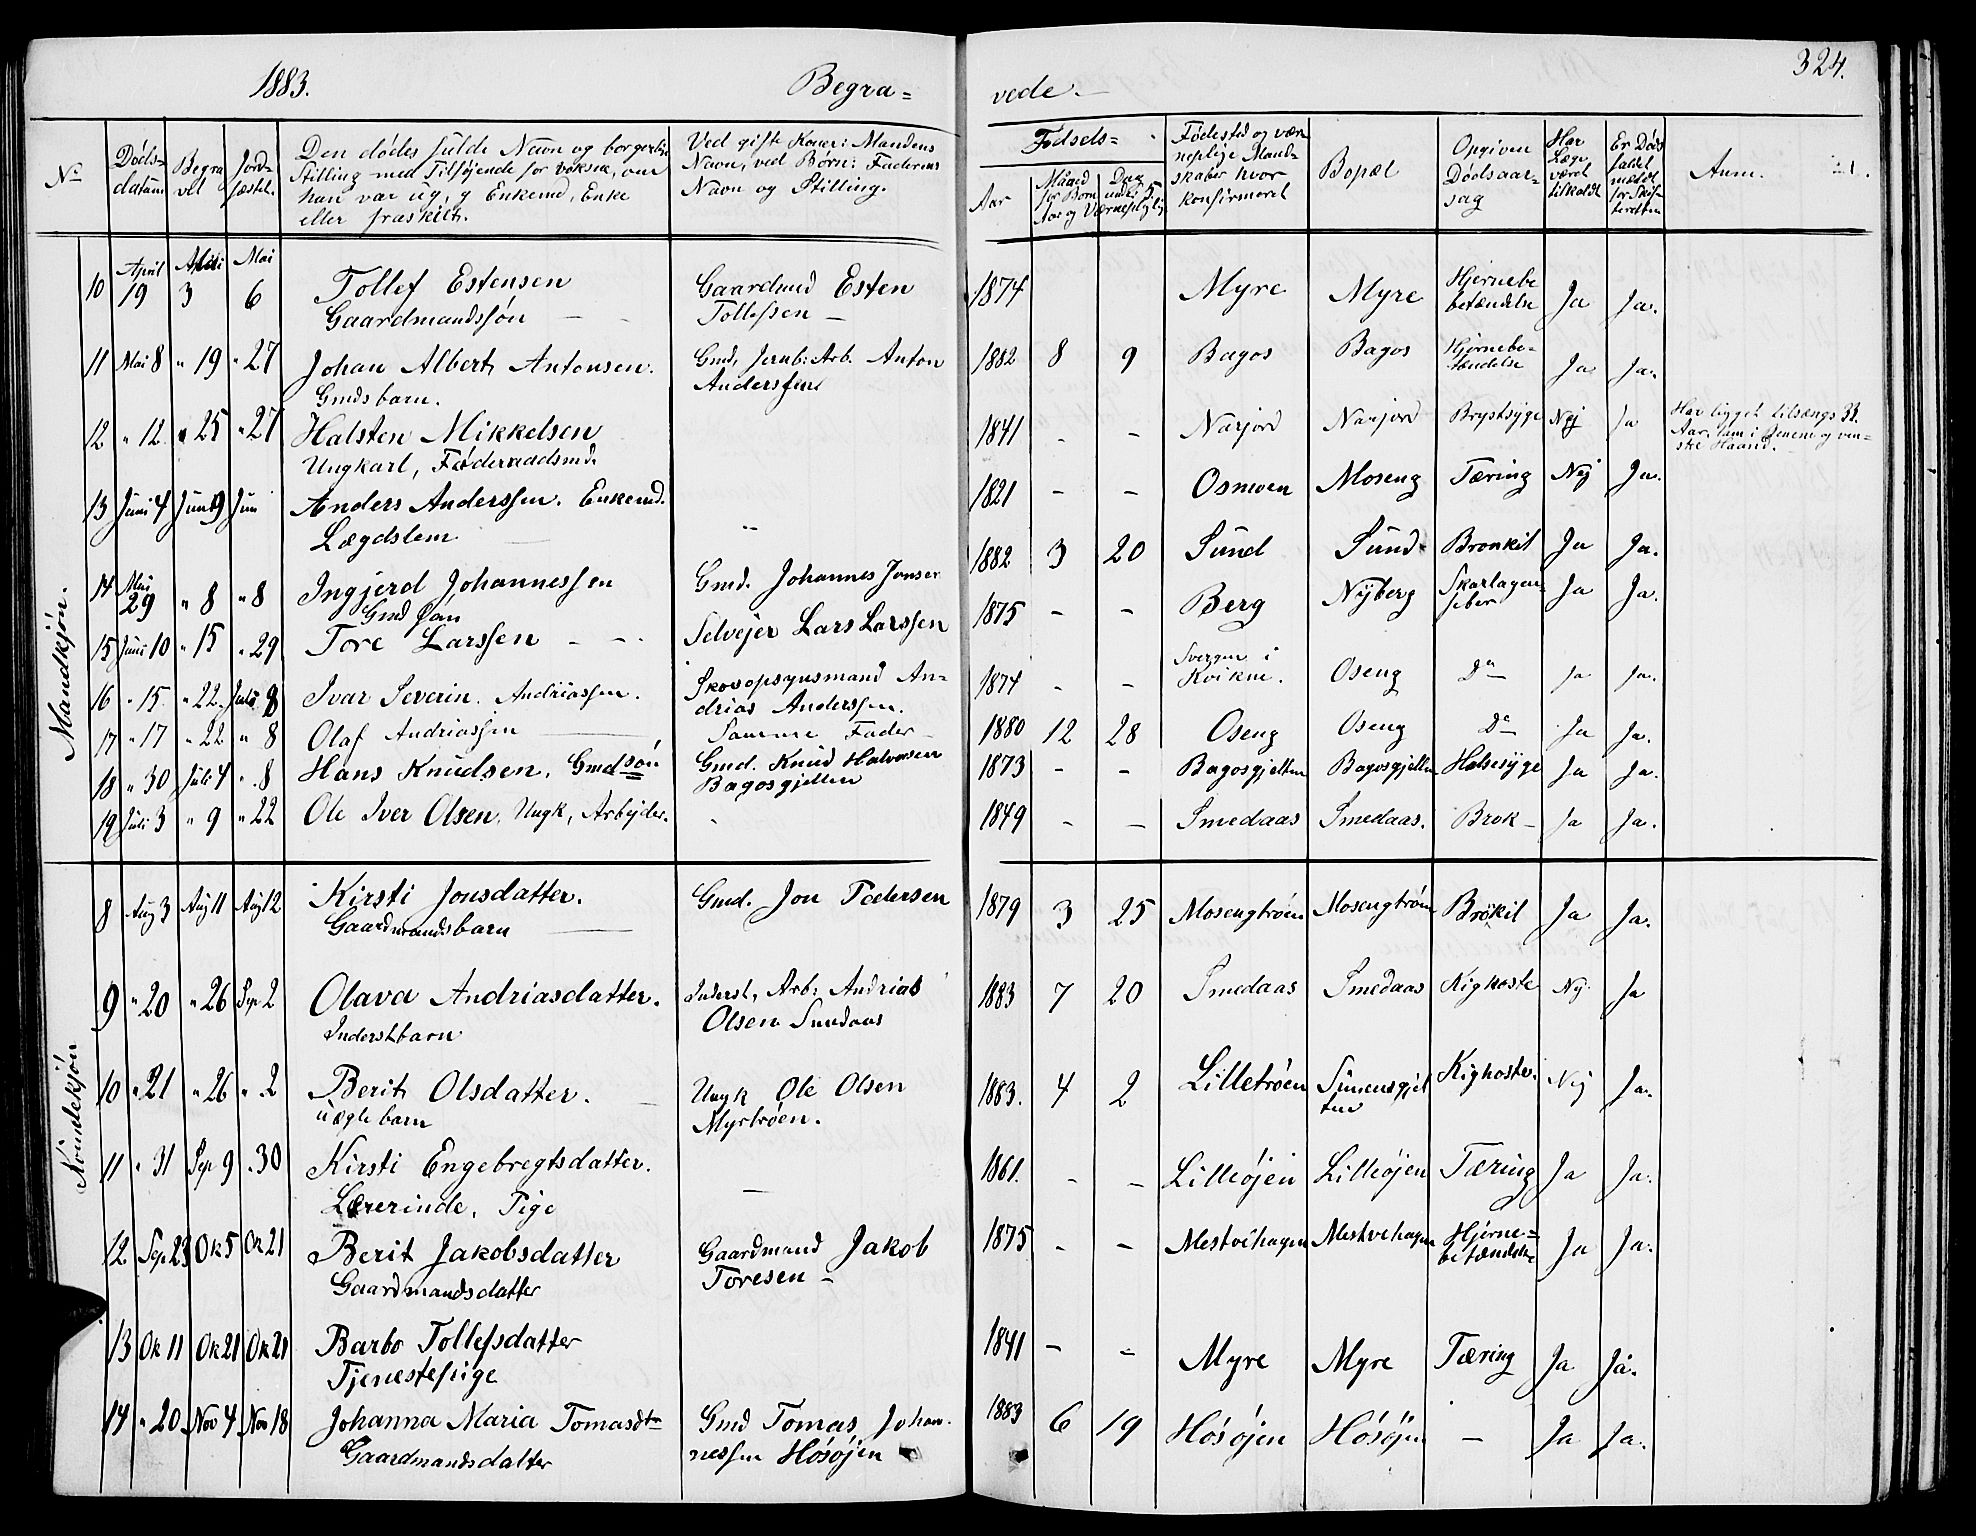 1883. Begra= vede. 324.
No
Døds-datum
Begravet
Jordfæstet.
Den dødes fulde Navn og borgerlige
Stilling med Tilføjende for voksne, om
han var ug., g Enkemd, Enke
eller fraskilt.
Ved gifte Koner: Mandens
Navn, ved Børn: Faderens
Navn og Stilling.
Fødsels=
Aar
Maaned for Born
Dag
Fødested og vær
nepligt Mand=
skaber hvor
konfirmeret
Bopæl
Opgiven
Dødsaar-
sag
Har
Læge
været
tilkaldt
Er Døds
faldet
meldt
for Skif-
teretten
Anm.
Mandkjøn.
April Mai Mai
10 19 3 6 Tollef Estensen Gaardmd Esten 1874 Myre Myre Hjernebe Ja Ja.
Gaardmandssøn — Tollefsen — betændelse
11 Mai 8 " 19 " 27 Johan Albert Antonsen. Gmd, Jernb: Arb. Anton 1882 8 9 Bagos Bagos Hjernebe= Ja Ja.
Gmdsbarn. Anderssen tændelse
12 " 12 " 25 " 27 Halsten Mikkelsen 1841 - - Narjord Narjord Brystsyge Nej Ja Har ligget tilsængs 33.
Ungkarl, Føderaadsmd. Aar, lam i Benene og ven=
ske Haand.
13 Juni 4 Juni 9 Juni Anders Anderssen. Enkemd. 1821 - - Osmoen Moseng Tæring Nej Ja.
Lægdslem "
14 Mai 29 " 8 " 8 Ingjerd Johannessen Gmd. Johannes Jonsen 1882 3 20 Sund Sund Bronkit Ja Ja.
Gmd søn
15 Juni 10 " 15 " 29 Tore Larssen - - Selvejer Lars Larssen 1875 - - Berg Nyberg Skarlagen Ja Ja.
feber
16 " 15 " 22 Juli 8 Ivar Severin. Andriassen. Skovopsynsmand An= 1874 - - Svergen i Oseng Do Ja Ja.
drias Anderssen. Kvikne.
17 " 17 " 22 " 8 Olaf Andriassen Samme Fader 1880 12 28 Oseng Oseng Do Ja Ja.
18 " 30 Juli 4 " 8 Hans Knudsen, Gmdsøn Gmd. Knud Halvorsen 1873 - - Bagosgjelten Bagosgjelten Halsesyge Ja Ja.
Bagosgjelten
19 Juli 3 " 9 " 22 Ole Iver Olsen, Ungk, Arbejder. - 1849 - - Smedaas Smedaas. Brok - Ja Ja.
Kvindekjøn
8 Aug 3 Aug 11 Aug 12 Kirsti Jonsdatter. Gmd. Jon Pedersen 1879 3 25 Mosengtrøen Mosengtrøen Brøkit Ja Ja.
Gaardmandsbarn —
9 " 20 " 26 Sep 2 Olava Andriasdatter. Inderst, Arb: Andrias 1883 7 20 Smedaas Smedaas Kighoste Nej Ja
Inderstbarn Olsen Smedaas
10 " 21 " 26 " 2 Berit Olsdatter. Ungk Ole Olsen 1883. 4 2 Lilletrøen Simensgjel Kighoste. Nej Ja.
uægte barn Myrtrøen. ten
11 " 31 Sep 9 " 30 Kirsti Engebregtsdatter. — 1861. - - Lilleøjen Lilleøjen Tæring Ja Ja.
Lærerinde, Pige
12 Sep 23 Ok 5 Ok 21 Berit Jakobsdatter Gaardmand Jakob 1875 - - Mestvehagen Mestvehagen Hjerne= Ja Ja.
Gaardmandsdatter Toresen — betændelse
13 Ok 11 Ok 21 Ok 21 Barbo Tollefsdatter 1841 - - Myre Myre Tæring Ja Ja.
Tjenestepige
14 " 20 Nov 4 Nov 18 Johanna Maria Tomasdtr Gmd Tomas Johan- 1883 6 19 Høsøjen Høsøjen - Ja Ja.
Gaardmandsdatter nessen Høsøjen